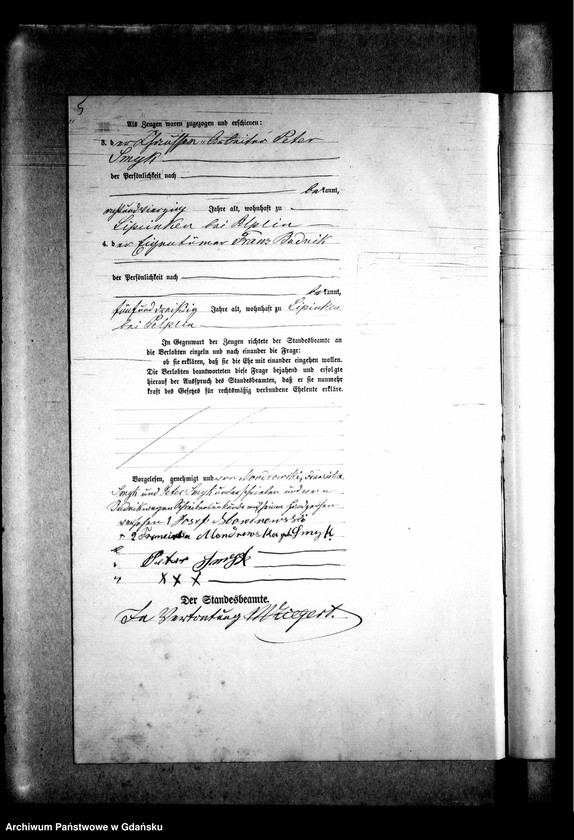 5
Als Zeugen waren zugezogen und erschienen:
3. der Chaussee-Arbeiter Peter
Smyk
der Persönlichkeit nach
bekannt,
Jahre alt, wohnhaft zu
Lipinken bei Pelplin
4. der Eigentümer Franz Bednik
der Persönlichkeit nach
bekannt,
fünfunddreißig Jahre alt, wohnhaft zu Lipinken
bei Pelplin
In Gegenwart der Zeugen richtete der Standesbeamte an
die Verlobten einzeln und nach einander die Frage:
ob sie erklären, daß sie die Ehe mit einander eingehen wollen.
Die Verlobten beantworteten diese Frage bejahend und erfolgte
hierauf der Ausspruch des Standesbeamten, daß er sie nunmehr
kraft des Gesetzes für rechtsmäßig verbundene Eheleute erkläre.
Vorgelesen, genehmigt und von Franziska
Smyk und Peter Smyk unterschrieben und von
Bednik wegen Schreibensunkunde mit seinem Handzeichen
versehen 1 Josef
" 2 Mondrewska geb. Smyk
" Peter Smyk
" X X X
Der Standesbeamte.
In Vertretung Wiegert.
Archiwum Państwowe w Gdańsku